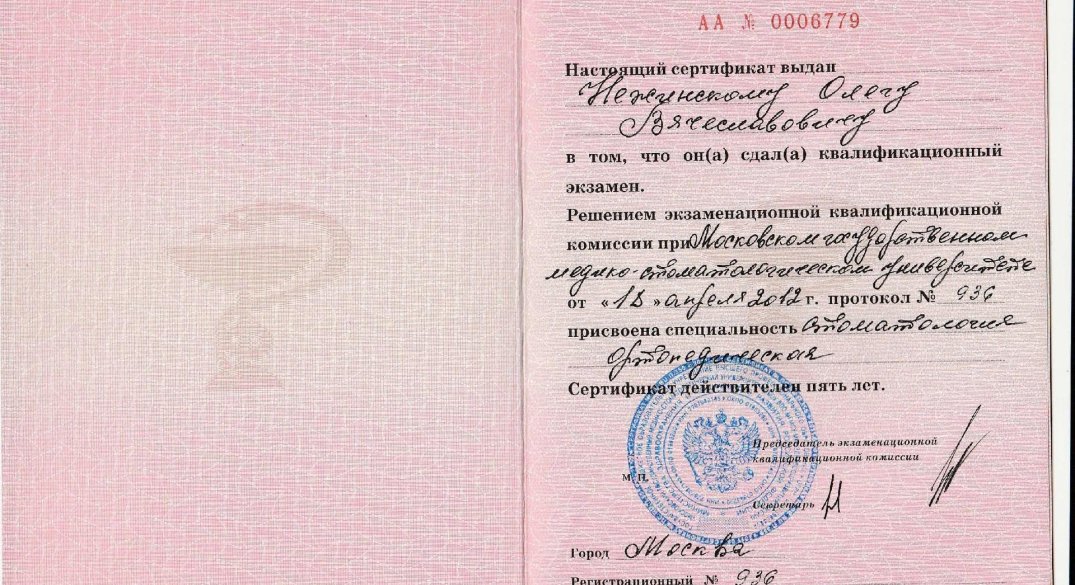 АА № 0006779
Настоящий сертификат выдан
Нежинскому Олегу
Вячеславовичу
в том, что он(а) сдал(а) квалификационный
экзамен.
Решением экзаменационной квалификационной
комиссии при Московском государственном
медико-стоматологическом университете
от «18» апреля 2012 г. протокол № 936
присвоена специальность Стоматология
ортопедическая
Сертификат действителен пять лет.
Председатель экзаменационной
квалификационной комиссии
М. П.
Секретарь
Город Москва
Регистрационный № 936